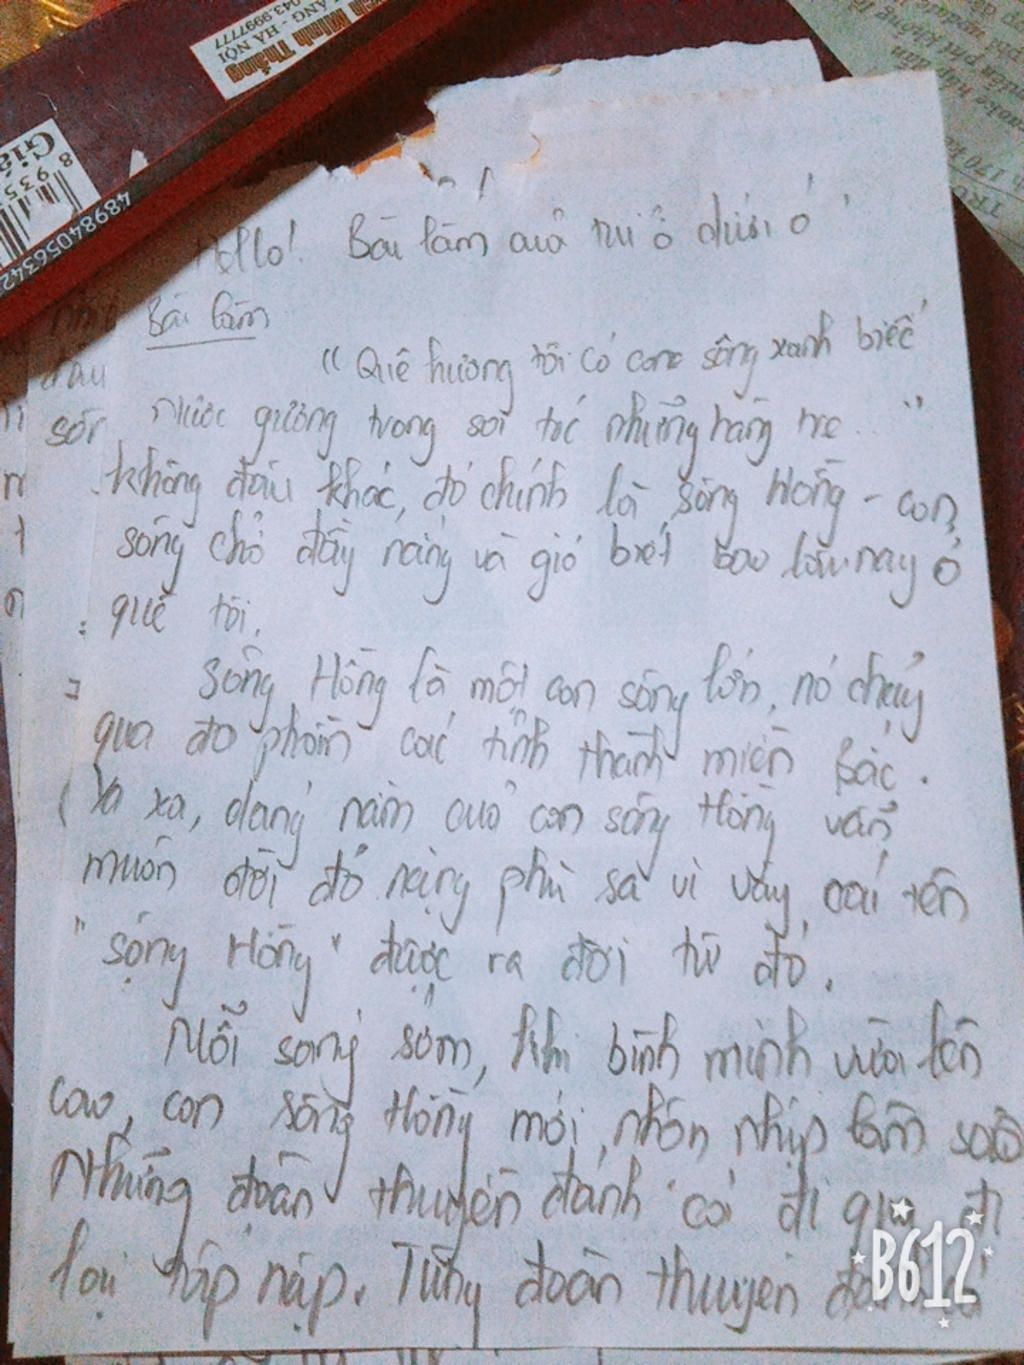 Minh Thắng
ẰNG - HÀ NỘI
043.9997777
Giá
8 935
4898405634
Hello! Bài làm của mi ở dưới ó
Bài làm
"Quê hương tôi có con sông xanh biếc
Nước gương trong soi tóc những hàng tre..."
không đâu khác, đó chính là sông Hồng - con
sông chở đầy nắng và gió biết bao lâu nay ở
quê tôi.
Sông Hồng là một con sông lớn, nó chảy
qua đa phần các tỉnh thành miền Bắc.
Xa xa, dáng nằm của con sông Hồng vẫn
muôn đời đỏ nặng phù sa vì vậy, cái tên
"sông Hồng" được ra đời từ đó.
Mỗi sáng sớm, khi bình minh vừa lên
cao, con sông Hồng mới nhộn nhịp làm sao
Những đoàn thuyền đánh cá đi qua đi
lại tấp nập. Từng đoàn thuyền
B612